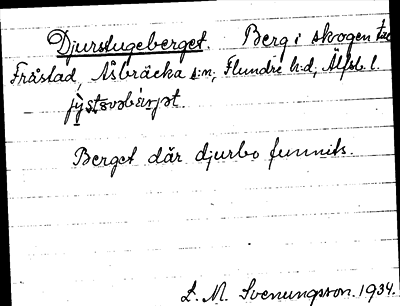 Djurstugeberget. Berg i skogen t
Fråstad, Åsbräcka s:n, Flundre h:d, Älfsb. l.
Berget där djurbo funnits.
L. M. Svenungsson. 1934.